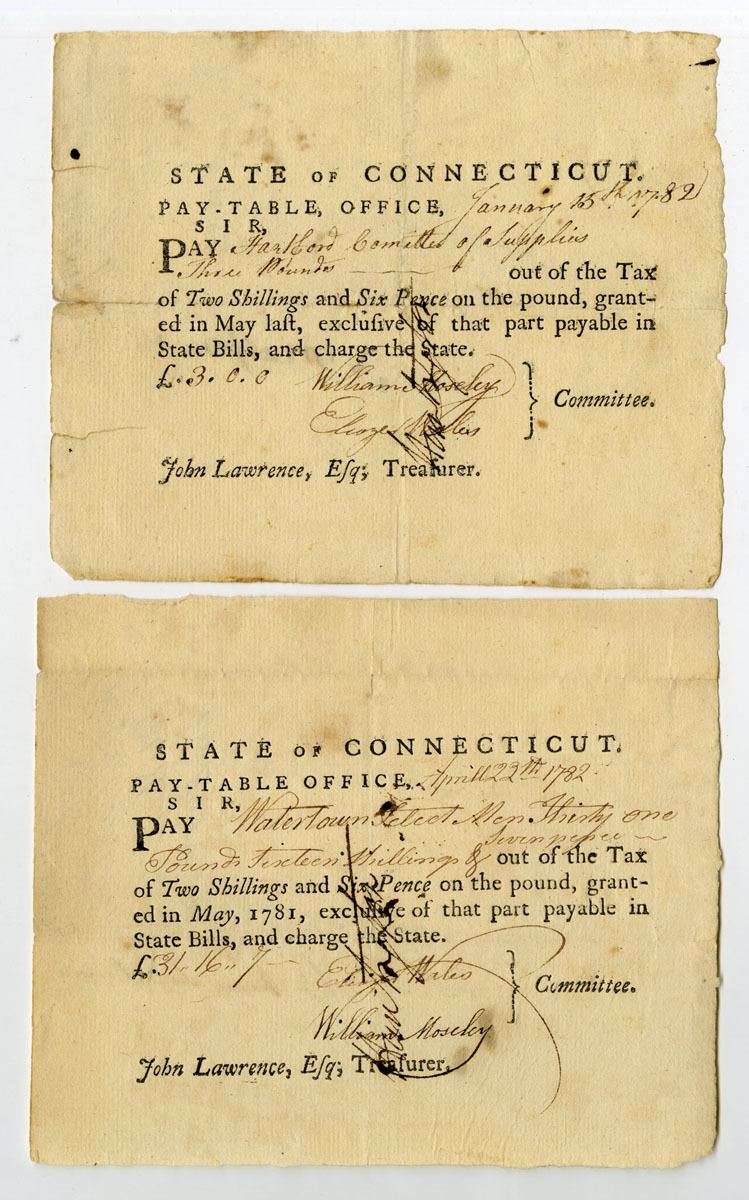 STATE OF CONNECTICUT.
PAY-TABLE, OFFICE, January 15th 1782
SIR,
PAY Hartford Comittee of Supplies
Three Pounds — out of the Tax
of Two Shillings and Six Pence on the pound, grant-
ed in May laſt, excluſive of that part payable in
State Bills, and charge the State.
£.3.0.0 William Moseley
Eleazr Wales } Committee.
John Lawrence, Eſq; Treaſurer.
STATE OF CONNECTICUT.
PAY-TABLE OFFICE, Aprill 22th 1782
SIR,
PAY Watertown Select Men Thirty one
Pounds Sixteen Shillings & Sevenpence — out of the Tax
of Two Shillings and Six Pence on the pound, grant-
ed in May, 1781, excluſive of that part payable in
State Bills, and charge the State.
£31.16..7 — Eleazr Wales
} Committee.
William Moseley
John Lawrence, Eſq; Treaſurer.